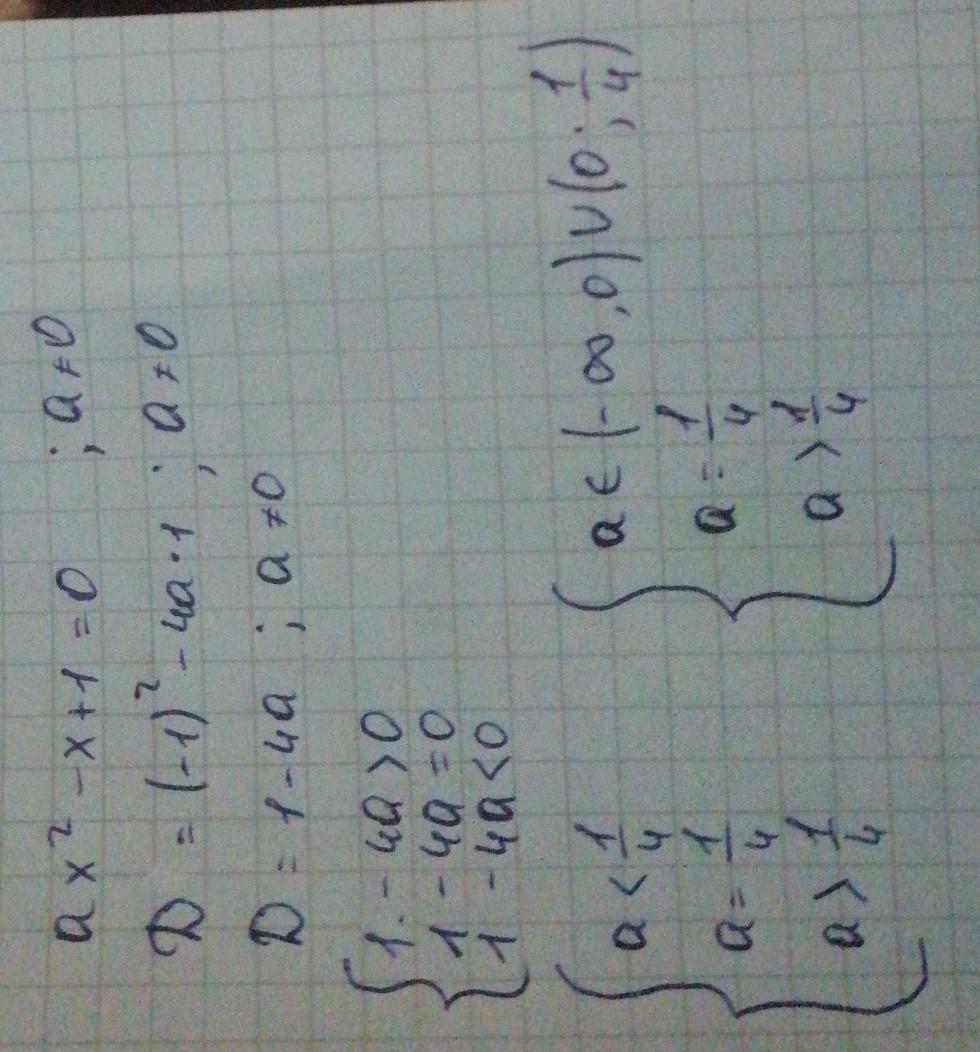 ax² - x + 1 = 0 ; a ≠ 0
D = (-1)² - 4a · 1 ; a ≠ 0
D = 1 - 4a ; a ≠ 0
{ 1 - 4a > 0
1 - 4a = 0
1 - 4a < 0
{ a < 1/4
a = 1/4
a > 1/4
{ a ∈ (-∞, 0) ∪ (0 ; 1/4)
a = 1/4
a > 1/4